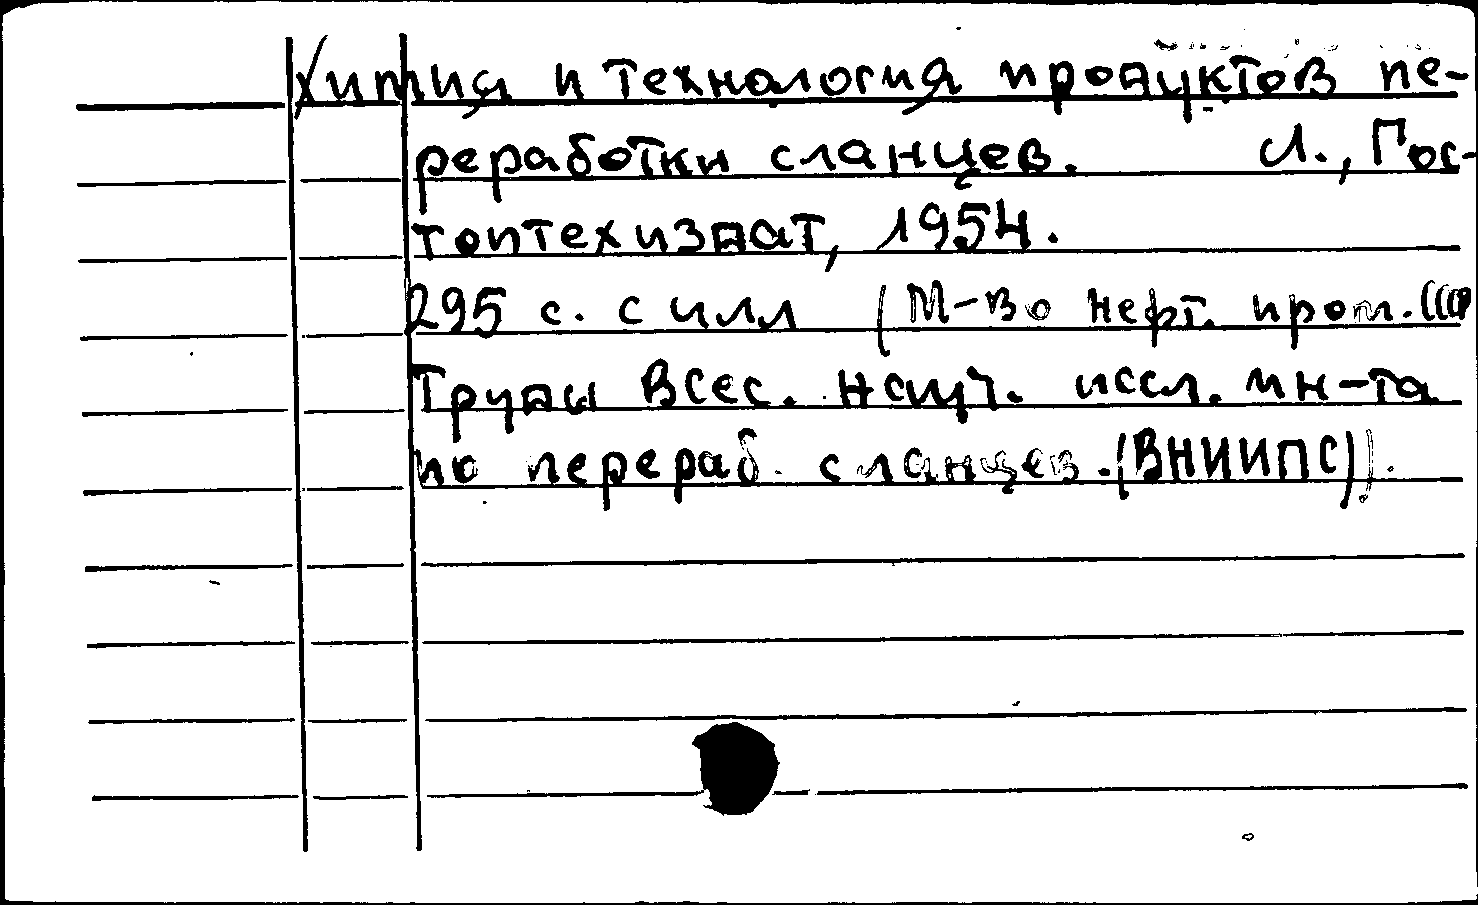 Химия и технология продуктов пе-
реработки сланцев. Л., Гос-
топтехиздат, 1954.
295 с. с илл (М-во нефт. пром.
Труды Всес. науч. иссл. ин-та
по перераб. сланцев.(ВНИИПС)).